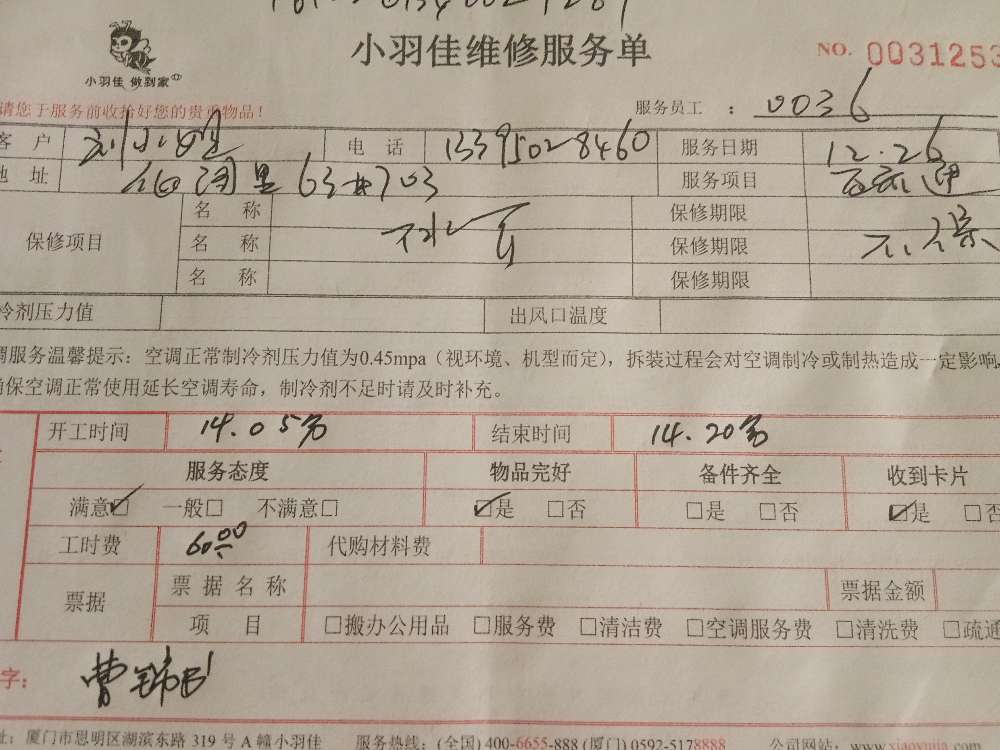 小羽佳维修服务单
NO. 0031253
小羽佳 做到家
请您于服务前收拾好您的贵重物品！
服务员工 ： 0036
客 户 刘小姐 电 话 13395028460 服务日期 12.26
地 址 63#703 服务项目
保修项目
名 称 保修期限
名 称 保修期限 不保
名 称 保修期限
冷剂压力值 出风口温度
调服务温馨提示：空调正常制冷剂压力值为0.45mpa（视环境、机型而定），拆装过程会对空调制冷或制热造成一定影响，
确保空调正常使用延长空调寿命，制冷剂不足时请及时补充。
开工时间 14.05分 结束时间 14.20分
服务态度 物品完好 备件齐全 收到卡片
满意☑ 一般□ 不满意□ ☑是 □否 □是 □否 ☑是 □否
工时费 60.00 代购材料费
票据 票据名称 票据金额
项 目 □搬办公用品 □服务费 □清洁费 □空调服务费 □清洗费 □疏通
字： 曹
址：厦门市思明区湖滨东路 319 号 A 幢小羽佳 服务热线：(全国) 400-6655-888 (厦门) 0592-5178888 公司网站：www.xiaoyujia.com